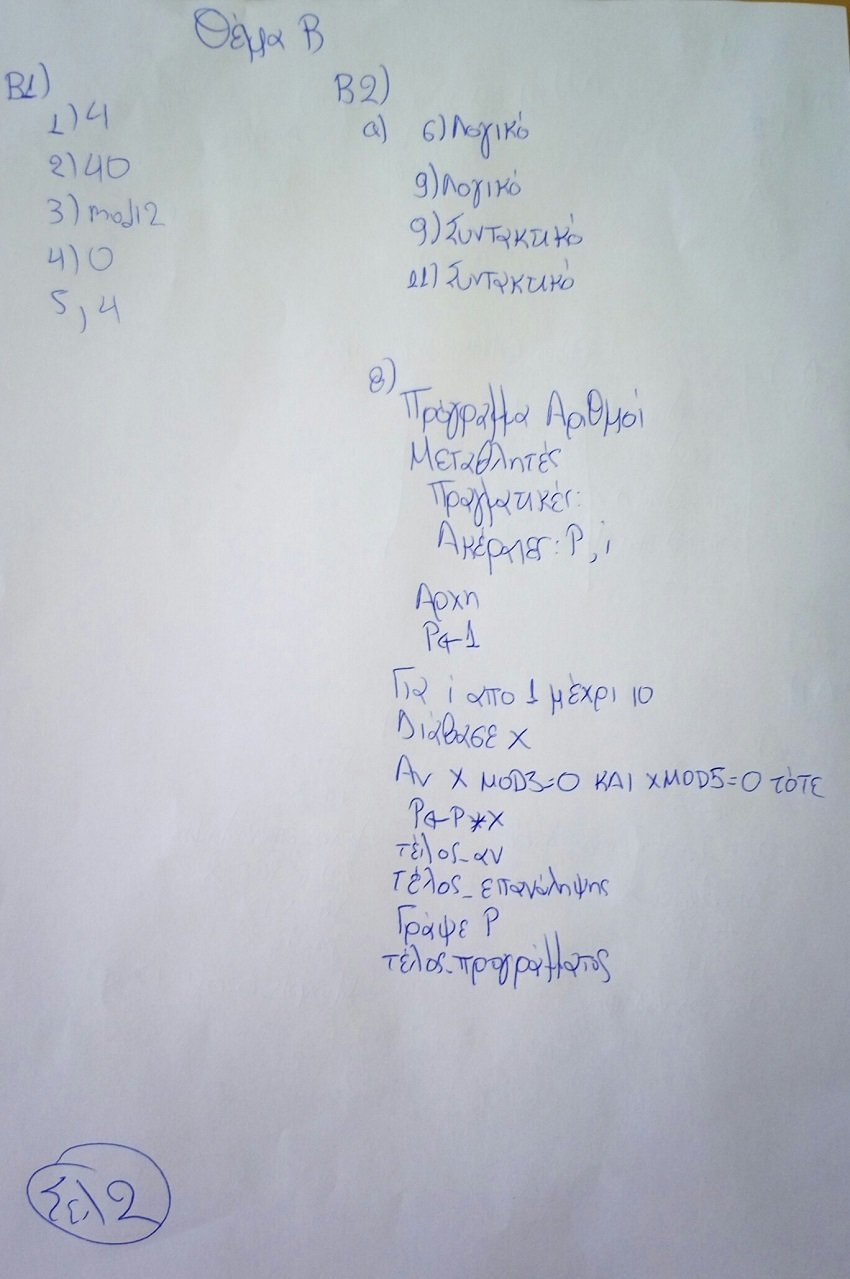 Θέμα Β
Β1)
1) 4
2) 40
3) mod12
4) 0
5, 4
Β2)
α) 6) Λογικό
9) Λογικό
9) Συντακτικό
11) Συντακτικό
β)
Πρόγραμμα Αριθμοί
Μεταβλητές
Πραγματικές:
Ακέραιες: P, i
Αρχη
P←1
Για i απο 1 μέχρι 10
Διάβασε x
Αν x MOD3=0 ΚΑΙ xMOD5=0 τότε
P←P*x
τέλος_αν
τέλος_επανάληψης
Γράψε P
τέλος_προγράμματος
Σελ 2